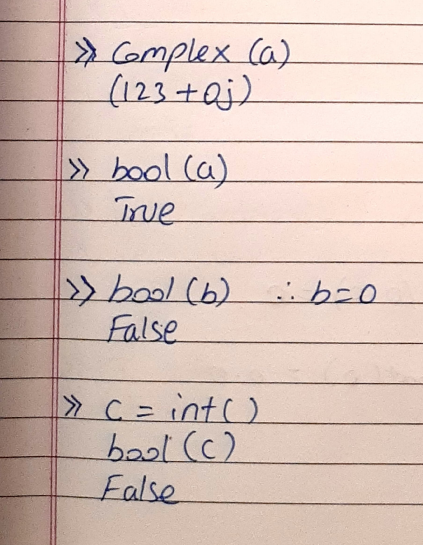 >> Complex (a)
(123+0j)
>> bool (a)
True
>> bool (b) ∴ b=0
False
>> C = int()
bool (C)
False